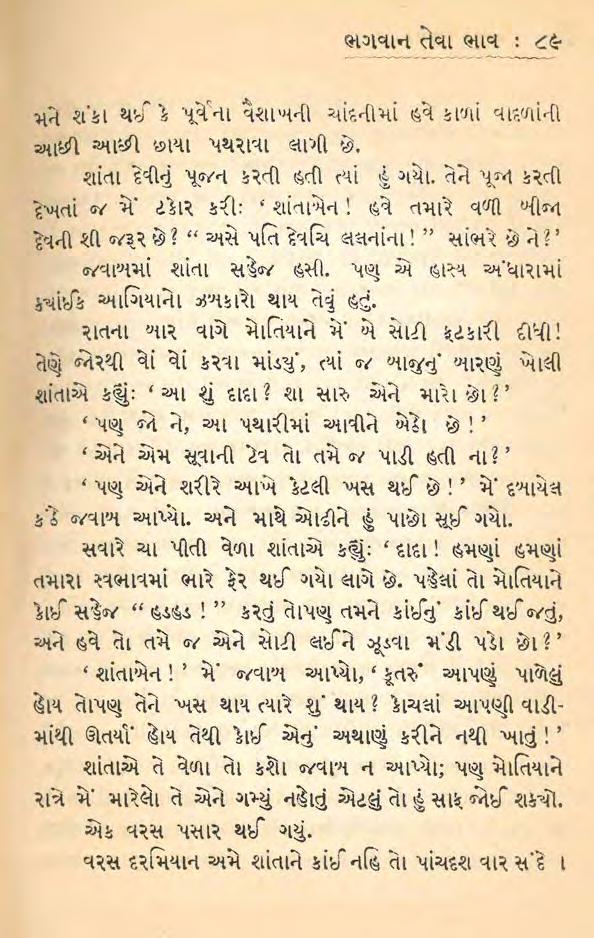 ભગવાન તેવા ભાવ : ૮૯
મને શંકા થઈ કે પૂર્વેના વૈશાખની ચાંદનીમાં હવે કાળાં વાદળાંની
આછી આછી છાયા પથરાવા લાગી છે.
શાંતા દેવીનું પૂજન કરતી હતી ત્યાં હું ગયો. તેને પૂજા કરતી
દેખતાં જ મેં ટકોર કરીઃ ‘ શાંતાબેન ! હવે તમારે વળી બીજા
દેવની શી જરૂર છે ? “ અસે પતિ દેવચિ લલનાંના ! ” સાંભરે છે ને ?’
જવાબમાં શાંતા સહેજ હસી. પણ એ હાસ્ય અંધારામાં
ક્યાંઈક આગિયાનો ઝબકારો થાય તેવું હતું.
રાતના બાર વાગે મોતિયાને મેં બે સોટી ફટકારી દીધી !
તેણે જોરથી વેાં વેાં કરવા માંડયું, ત્યાં જ બાજુનું બારણું ખોલી
શાંતાએ કહ્યુંઃ ‘ આ શું દાદા ? શા સારુ એને મારો છો ?’
‘ પણ જો ને, આ પથારીમાં આવીને બેઠો છે ! ’
‘ એને એમ સૂવાની ટેવ તો તમે જ પાડી હતી ના ?’
‘ પણ એને શરીરે આખે કેટલી ખસ થઈ છે ! ’ મેં દબાયેલ
કંઠે જવાબ આપ્યો. અને માથે ઓઢીને હું પાછો સૂઈ ગયો.
સવારે ચા પીતી વેળા શાંતાએ કહ્યુંઃ ‘ દાદા ! હમણાં હમણાં
તમારા સ્વભાવમાં ભારે ફેર થઈ ગયો લાગે છે. પહેલાં તો મોતિયાને
કોઈ સહેજ “ હડહડ ! ” કરતું તોપણ તમને કાંઈનું કાંઈ થઈ જતું,
અને હવે તો તમે જ એને સોટી લઈને ઝૂડવા મંડી પડો છો ?’
‘ શાંતાબેન ! ’ મેં જવાબ આપ્યો, ‘ કૂતરું આપણું પાળેલું
હોય તોપણ તેને ખસ થાય ત્યારે શું થાય ? કાચલાં આપણી વાડી-
માંથી ઊતર્યાં હોય તેથી કોઈ એનું અથાણું કરીને નથી ખાતું ! ’
શાંતાએ તે વેળા તો કશો જવાબ ન આપ્યો; પણ મોતિયાને
રાત્રે મેં મારેલો તે એને ગમ્યું નહોતું એટલું તો હું સાફ જોઈ શક્યો.
એક વરસ પસાર થઈ ગયું.
વરસ દરમિયાન અમે શાંતાને કાંઈ નહિ તો પાંચદશ વાર